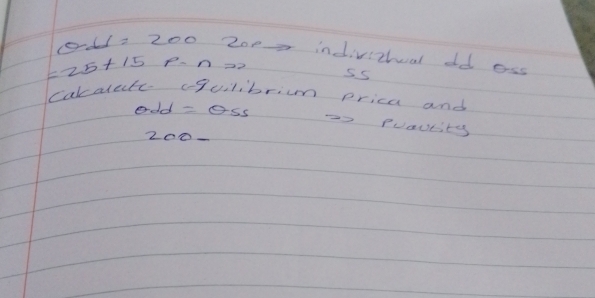 Qdd = 200 20P → individual dd Qss
= 25 + 15 P - n ⇒ ss
Calculate equilibrium price and
Qdd = Qss ⇒ Quantity
200 -